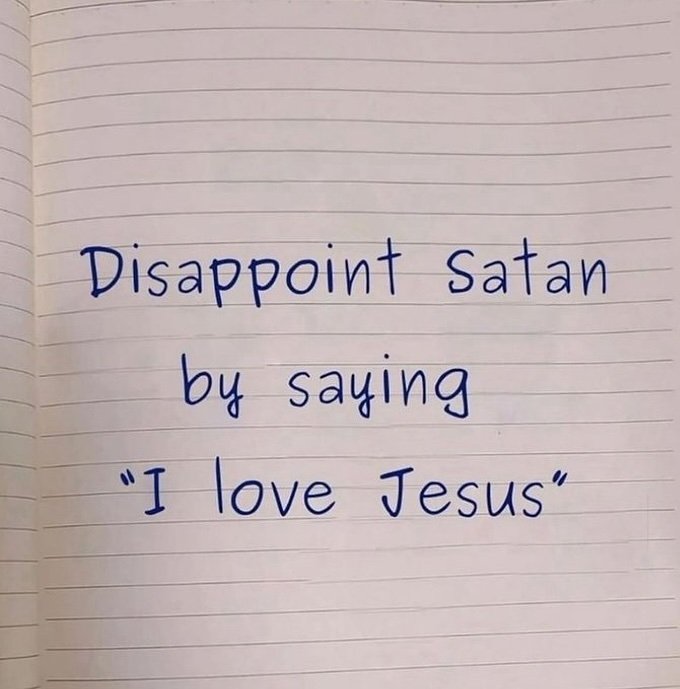 Disappoint Satan
by saying
"I love Jesus"